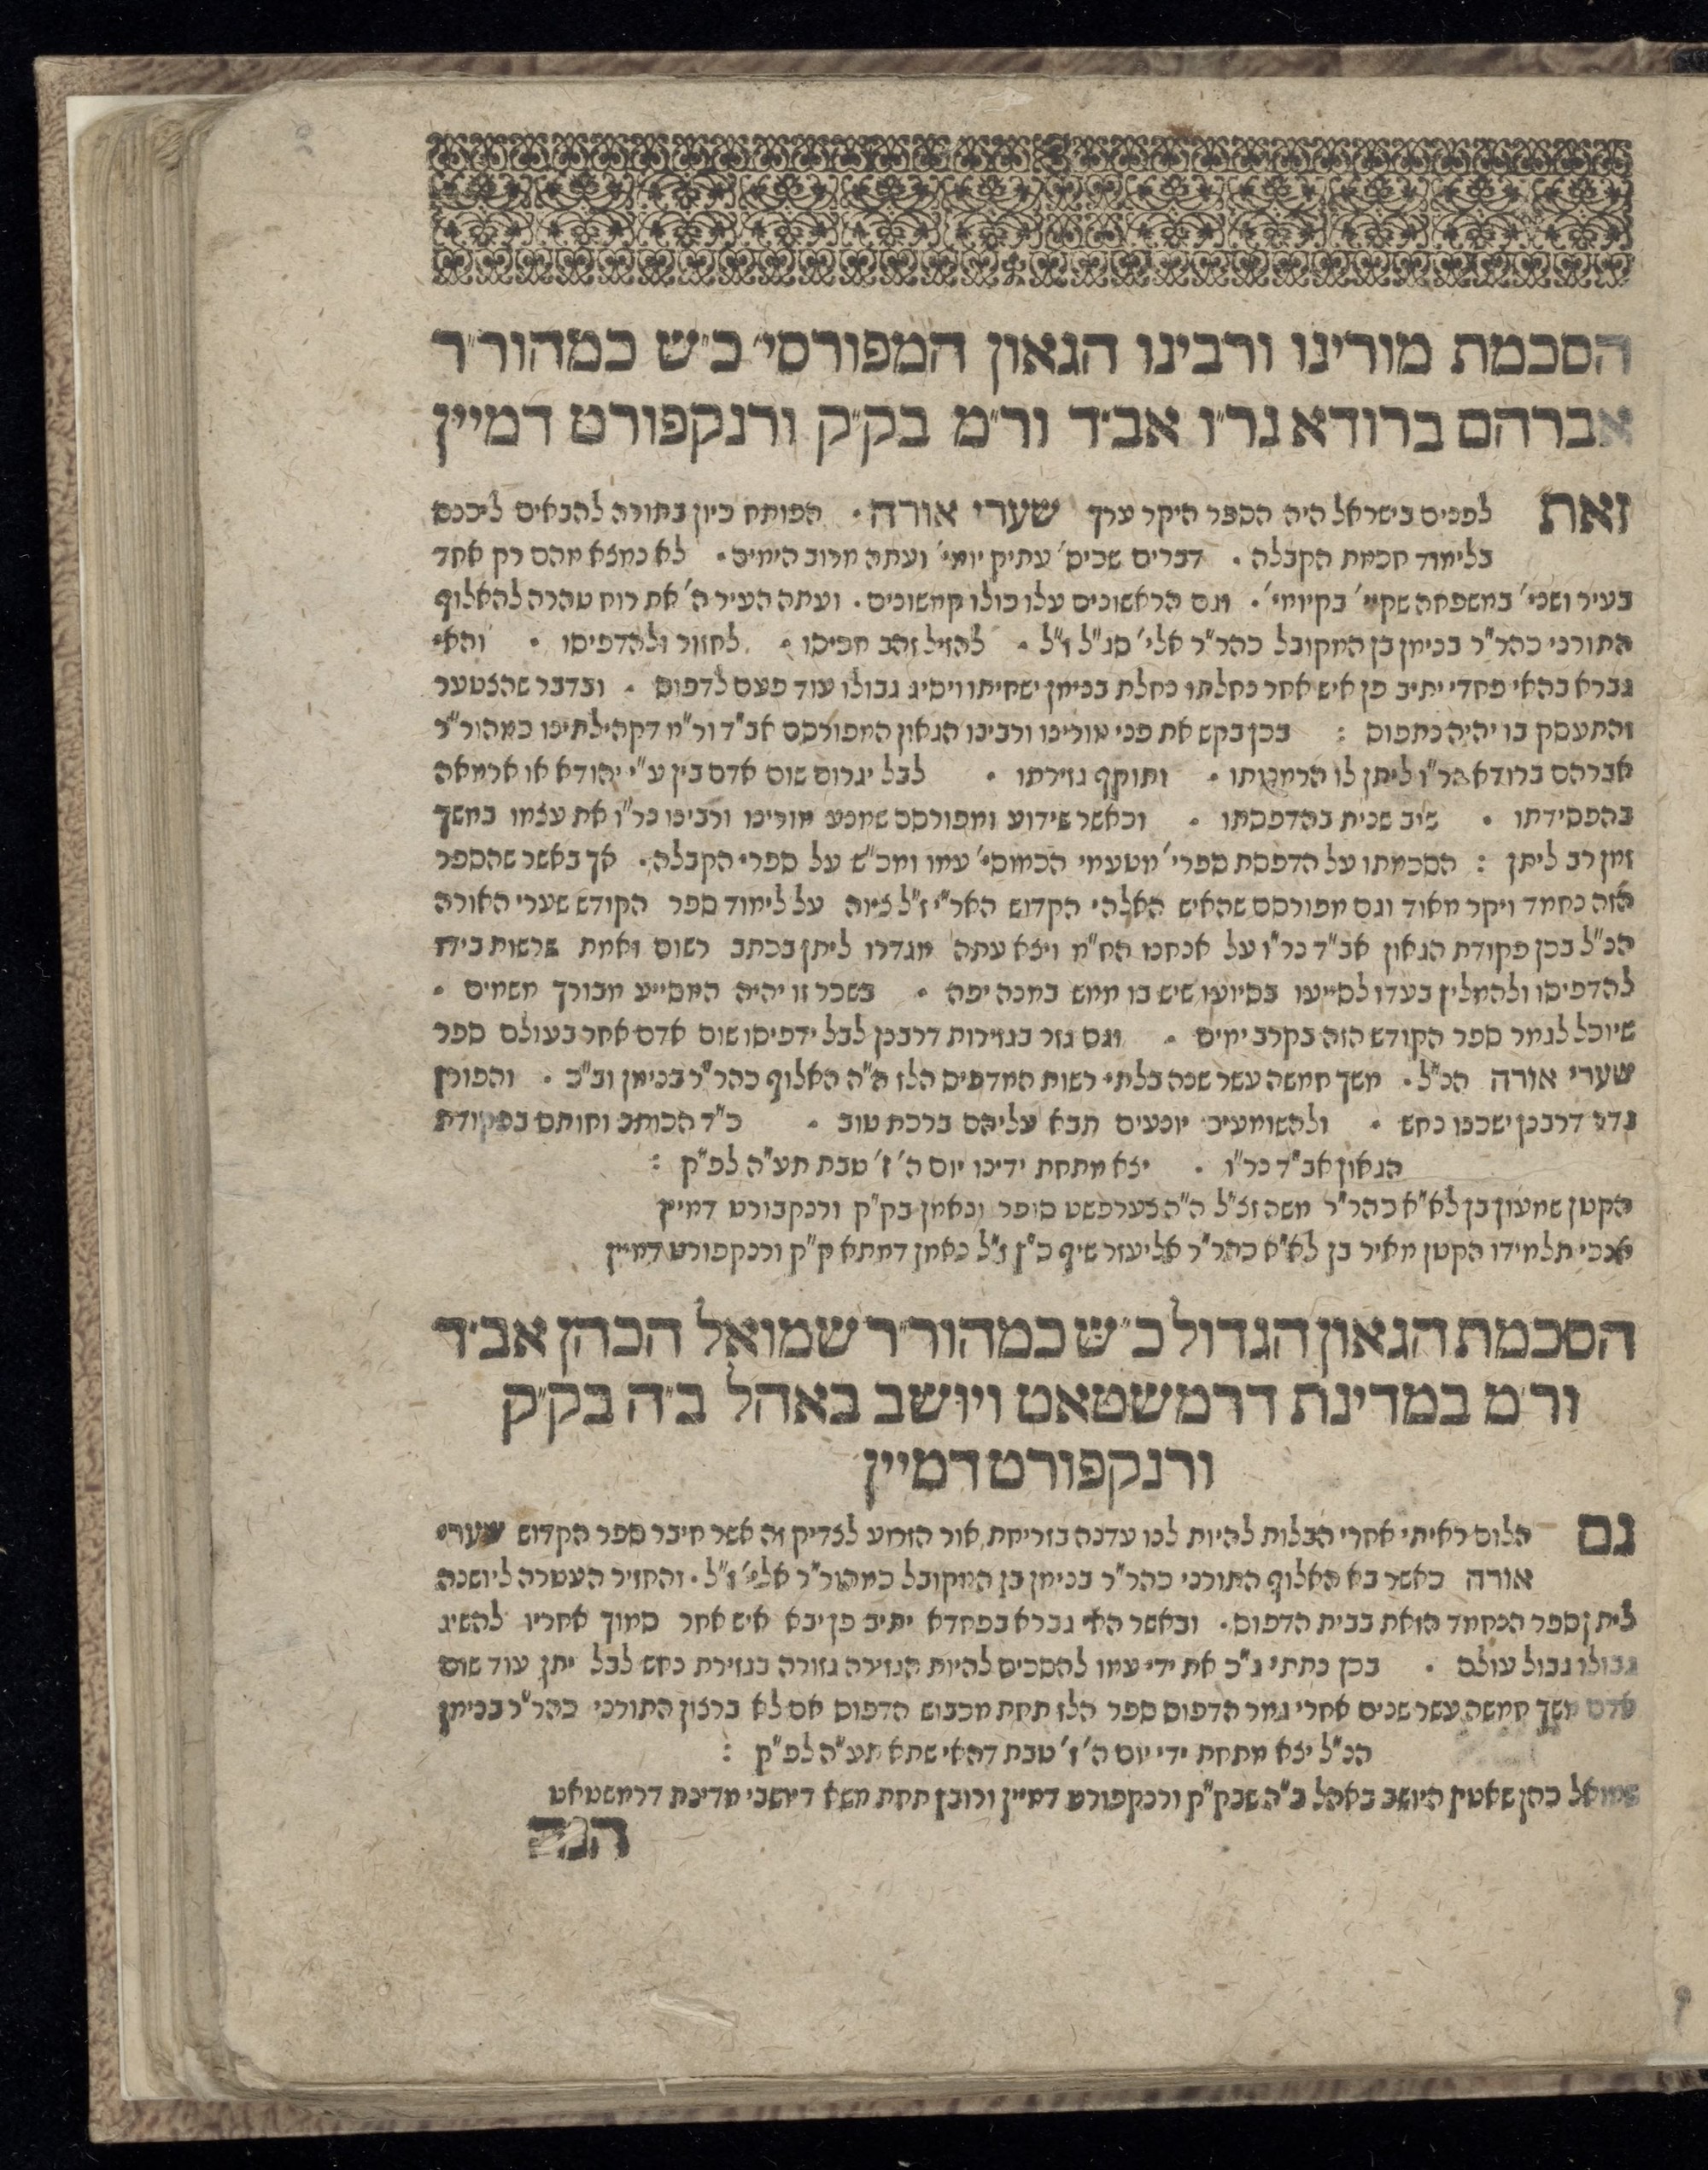 הסכמת מורינו ורבינו הגאון המפורסי׳ כ״ש כמהור״ר
אברהם ברודא נר״ו אב״ד ור״מ בק״ק ורנקפורט דמיין
זאת לפנים בישראל היה הספר היקר ערך שערי אורה. הפותח כיון בתורה להבאים ליכנס
בלימוד חכמת הקבלה. דברים שכים׳ עתיק יומי׳ ועתה מרוב הימים. לא נמצא מהם רק אחד
בעיר ושני׳ במשפחה שקיי׳ בקיומי׳. וגם הראשונים עלו כולו קמשונים. ועתה העיר ה׳ את רוח טהרה להאלוף
התורני כהר״ר בנימן בן המקובל כהר״ר אלי׳ סג״ל ז״ל. להזיל זהב מכיסו. לחזור ולהדפיסו. והאי
גברא בהאי פחדי יתיב פן איש אחר נחלתו נחלת בנימן ישחיתו ויסיג גבולו עוד פעם לדפוס. ובדבר שהצטער
והתעסק בו יהיה נתפוס : בכן בקש את פני מורינו ורבינו הגאון המפורסם אב״ד ור״מ דקהילתינו כמהור״ר
אברהם ברודא נר״ו ליתן לו הרמנותו. ותוקף גזירתו. לבל יגרום שום אדם בין ע״י יהודא או ארמאה
בהפסידתו. שנית בהדפסתו. וכאשר שידוע ומפורסם שמנע מורינו ורבינו נר״ו את עצמו במשך
זמן רב ליתן : הסכמתו על הדפסת ספרי׳ מטעמי הכמוסי׳ עמו ומכ״ש על ספרי הקבלה. אך באשר שהספר
הזה נחמד ויקר מאוד וגם מפורסם שהאיש האלהי הקדוש האר״י ז״ל ציוה על לימוד ספר הקודש שערי האורה
הנ״ל בכן פקודת הגאון אב״ד נר״ו על אנחנו הח״מ ויצא עתה מגדרו ליתן בכתב רשום ואמת שרשות בידו
להדפיסו ולהמליץ בעדו לסייעו בסיועו שיש בו ממש במנה יפה. בשכר זו יהיה המסייע מבורך משמים.
שיוכל לגמר ספר הקודש הזה בקרב ימים. וגם גזר בגזירות דרבנן לבל ידפיסו שום אדם אחר בעולם ספר
שערי אורה הנ״ל. משך חמשה עשר שנה בלתי רשות המדפיס הלז ה״ה האלוף כהר״ר בנימן וב״כ. והפורץ
גדר דרבנן ישכנו נחש. ולהשומעים יונעים תבא עליהם ברכת טוב. כ״ד הכותב וחותם בפקודת
הגאון אב״ד נר״ו. יצא מתחת ידינו יום ה׳ ז׳ טבת תע״ה לפ״ק :
הקטן שמעון בן לא״א כהר״ר משה זצ״ל ה״ה סופר ונאמן בק״ק ורנקבורט דמיין
אנכי תלמידו הקטן מאיר בן לא״א כהר״ר אליעזר שיף כ״ץ ז״ל נאמן דמתא ק״ק ורנקפורט דמיין
הסכמת הגאון הגדול כ״ש כמהור״ר שמואל הכהן אב״ד
ור״מ במדינת דרמשטאט ויושב באהל ב״ה בק״ק
ורנקפורט דמיין
גם הלום ראיתי אחרי הבלות להיות לנו עדנה בזריחת אור הזרוע לצדיק זה אשר חיבר ספר הקדוש שערי
אורה כאשר בא האלוף התורני כהר״ר בנימן בן המקובל כמהור״ר אלי׳ ז״ל. והחזיר העטרה ליושנה
ליתן ספר הנחמד הזאת בבית הדפוס. ובאשר האי גברא בפחדא יתיב פן יבא איש אחר סמוך אחריו להשיג
גבולו גבול עולם. בכן נתתי ג״כ את ידי עמו להסכים להיות הגזירה גזורה בגזירת נחש לבל יתן עוד שום
אדם משך חמשה עשר שנים אחרי גמר הדפוס ספר הלז תחת מכבוש הדפוס אם לא ברצון התורני כהר״ר בנימן
הנ״ל יצא מתחת ידי יום ה׳ ז׳ טבת דהאי שתא תע״ה לפ״ק :
שמואל כהן שאטין היושב באהל ב״ה שבק״ק ורנקפורט דמיין ורובץ תחת משא דיושבי מדינת דרמשטאט